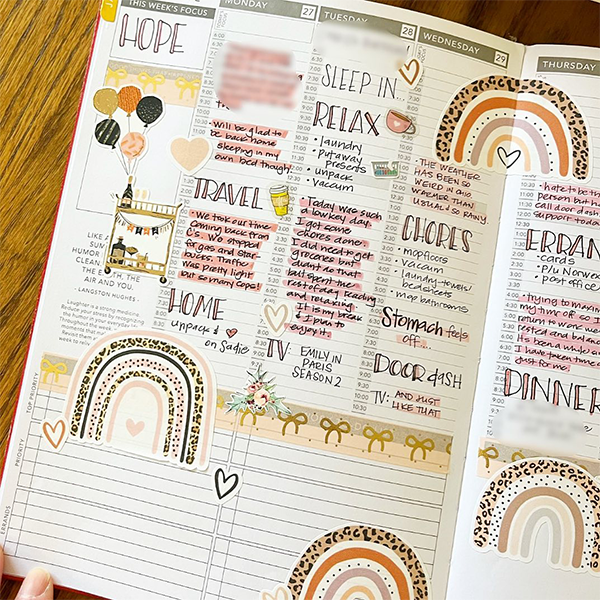 THIS WEEK'S FOCUS
HOPE
LAUGH
SUM
HUMOR
CLEAN
THE EARTH, THE
AIR AND YOU.
- LANGSTON HUGHES -
Laughter is a strong medicine.
TOP PRIORITY
PRIORITY
ERRANDS
MONDAY
27
• Will be glad to
be back home
sleeping in my
own bed though!
TRAVEL
• We took our time
coming back from
C's. We stopped
for gas and Star
bucks. Traffic
was pretty light
but so many cops!
HOME
unpack &
on Sadie
TUESDAY
28
SLEEP IN...
RELAX
• laundry
• putaway
presents
• unpack
• vaccum
• Today was such
a low key day.
I got some
chores done.
I did need to get
groceries but
didn't do that
but spent the
rest of day reading
and relaxing.
It is my break
& I plan to
enjoy it.
TV: EMILY IN
PARIS
SEASON 2
WEDNESDAY
29
• THE WEATHER
HAS BEEN SO
WEIRD IN OUR
WARMER THAN
USUAL & SO RAINY
CHORES
• mop floors
• Vaccum
• laundry-towels/
bed sheets
• mop bathrooms
Stomach feels
off...
DOOR DASH
TV: AND JUST
LIKE THAT
THURSDAY
• hate to be th
person but h
call door dash
support toda
ERRAN
• cards
• P/u Norwex
• post office
• Trying to ma
my time off so I
return to work
rested and balan
I have taken time
Just for me.
DINNER